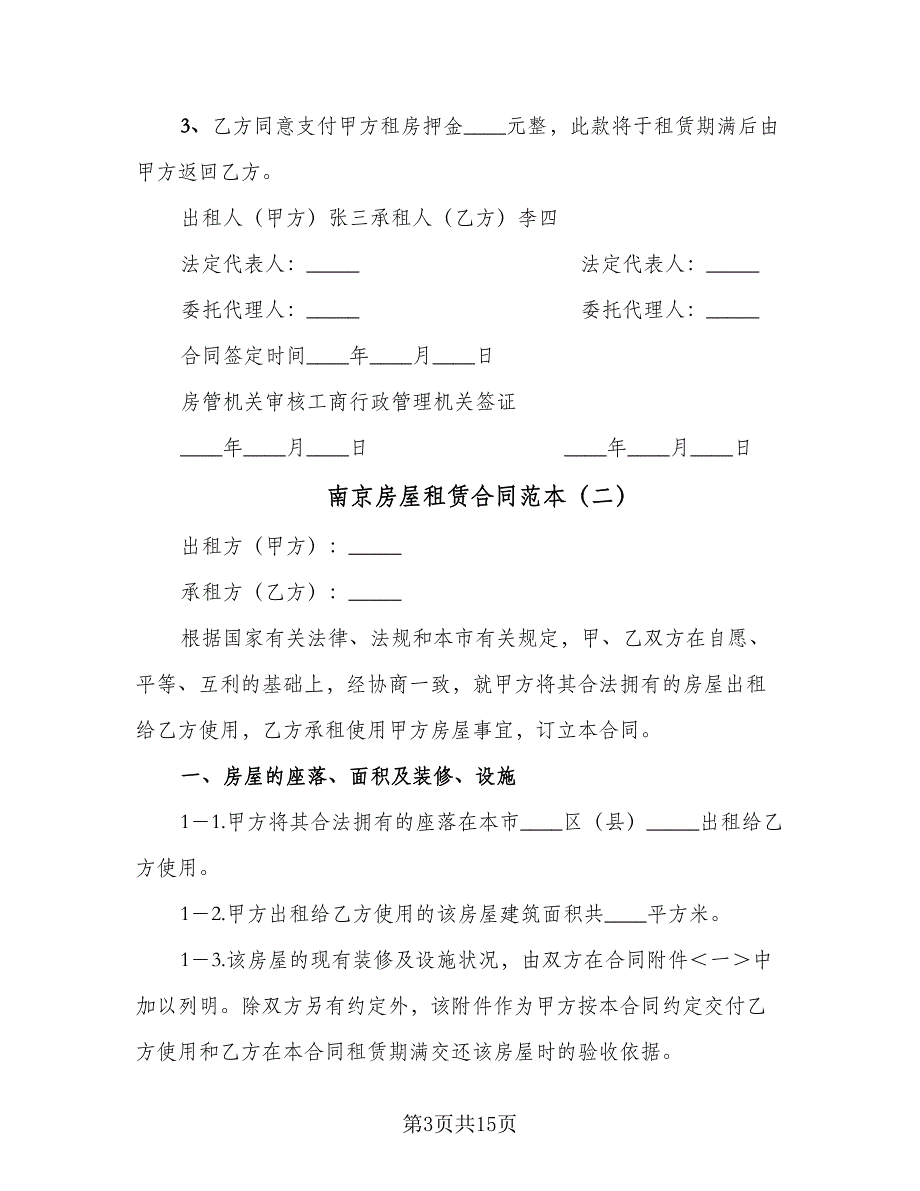 3、乙方同意支付甲方租房押金____元整，此款将于租赁期满后由
甲方返回乙方。
出租人（甲方）张三承租人（乙方）李四
法定代表人：_____ 法定代表人：_____
委托代理人：_____ 委托代理人：_____
合同签定时间____年____月____日
房管机关审核工商行政管理机关签证
____年____月____日 ____年____月____日
南京房屋租赁合同范本（二）
出租方（甲方）：_____
承租方（乙方）：_____
根据国家有关法律、法规和本市有关规定，甲、乙双方在自愿、
平等、互利的基础上，经协商一致，就甲方将其合法拥有的房屋出租
给乙方使用，乙方承租使用甲方房屋事宜，订立本合同。
一、房屋的座落、面积及装修、设施
1－1.甲方将其合法拥有的座落在本市____区（县）_____出租给乙
方使用。
1－2.甲方出租给乙方使用的该房屋建筑面积共____平方米。
1－3.该房屋的现有装修及设施状况，由双方在合同附件＜一＞中
加以列明。除双方另有约定外，该附件作为甲方按本合同约定交付乙
方使用和乙方在本合同租赁期满交还该房屋时的验收依据。
第3页共15页